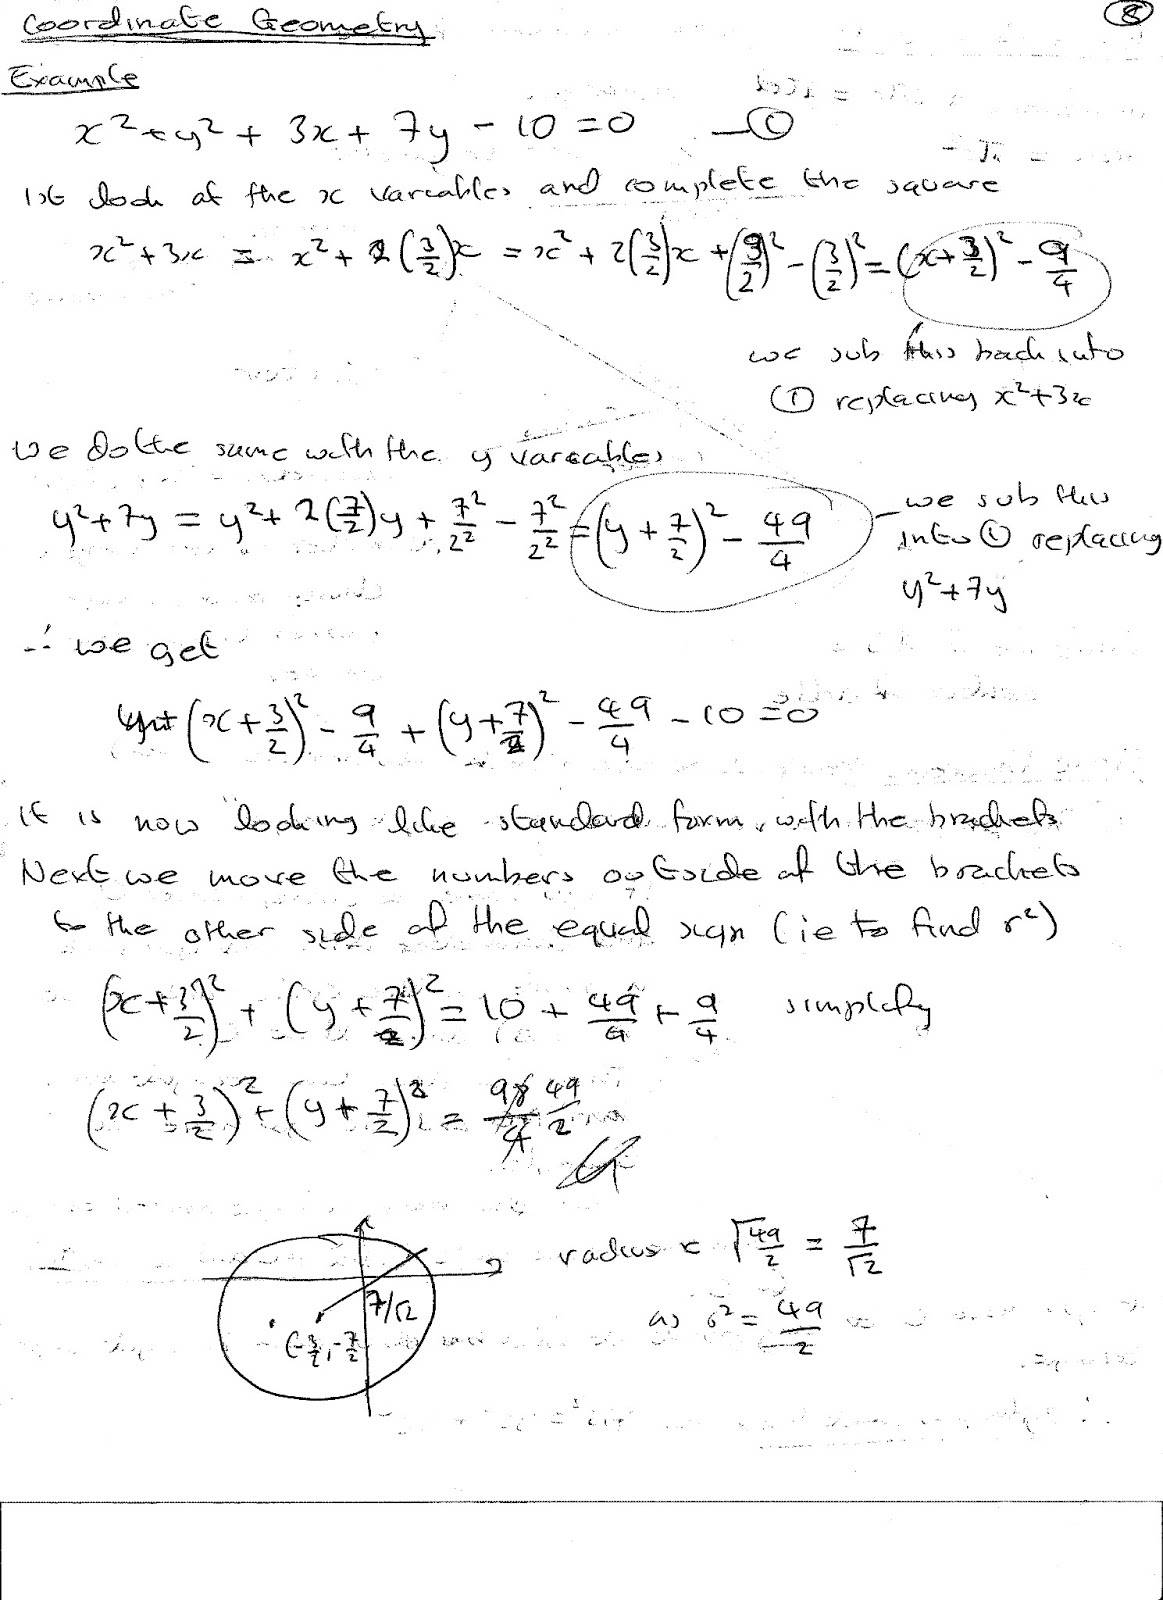 Coordinate Geometry
8
Example
x² + y² + 3x + 7y - 10 = 0 — ①
1st look at the x variables and complete the square
x² + 3x = x² + 2(3/2)x = x² + 2(3/2)x + (3/2)² - (3/2)² = (x + 3/2)² - 9/4
we sub this back into
① replacing x² + 3x
we do the same with the y variables
y² + 7y = y² + 2(7/2)y + 7²/2² - 7²/2² = (y + 7/2)² - 49/4
we sub this
into ① replacing
y² + 7y
∴ we get
(x + 3/2)² - 9/4 + (y + 7/2)² - 49/4 - 10 = 0
it is now looking like standard form with the brackets
Next we move the numbers outside of the brackets
to the other side of the equal sign (ie to find r²)
(x + 3/2)² + (y + 7/2)² = 10 + 49/4 + 9/4 simplify
(x + 3/2)² + (y + 7/2)² = 98/4 49/2
radius = √49/2 = 7/√2
7/√2
(-3/2, -7/2)
as r² = 49/2